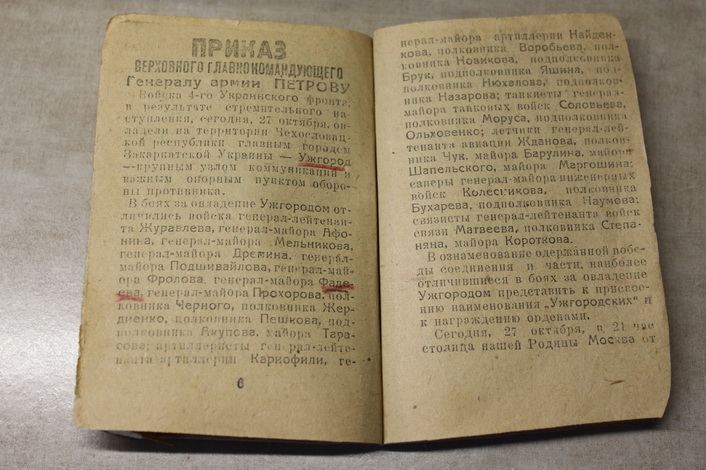 ПРИКАЗ
ВЕРХОВНОГО ГЛАВНОКОМАНДУЮЩЕГО
Генералу армии ПЕТРОВУ
Войска 4-го Украинского фронта,
в результате стремительного на-
ступления, сегодня, 27 октября, ов-
ладели на территории Чехословац-
кой республики главным городом
Закарпатской Украины — Ужгород
—крупным узлом коммуникаций и
важным опорным пунктом оборо-
ны противника.
В боях за овладение Ужгородом от-
личились войска генерал-лейтенан-
та Журавлева, генерал-майора Афо-
нина, генерал-майора Мельникова,
генерал-майора Дремина, генерал-
майора Подшивайлова, генерал-май-
ора Фролова, генерал-майора Фаде-
ева, генерал-майора Прохорова, пол-
ковника Черного, полковника Жер-
дненко, полковника Пешкова, под-
полковника Аякупова, майора Тара-
сова; артиллеристы генерал-лейте-
нанта артиллерии Кариофили, ге-
6
нерал-майора артиллерии Найден-
кова, полковника Воробьева, пол-
ковника Новикова, подполковника
Брук, подполковника Яшина, под-
полковника Нюхалова, подполков-
ника Назарова; танкисты генерал-
майора танковых войск Соловьева,
полковника Моруса, подполковника
Ольховенко; летчики генерал-лей-
тенанта авиации Жданова, полков-
ника Чук, майора Барулина, майора
Шапельского, майора Маргошина;
саперы генерал-майора инженерных
войск Колесникова, полковника
Бухарева, подполковника Наумова;
связисты генерал-лейтенанта войск
связи Матвеева, полковника Степа-
няна, майора Короткова.
В ознаменование одержанной побе-
ды соединения и части, наиболее
отличившиеся в боях за овладение
Ужгородом представить к присвое-
нию наименования „Ужгородских“ и
к награждению орденами.
Сегодня, 27 октября, в 21 час
столица нашей Родины Москва от